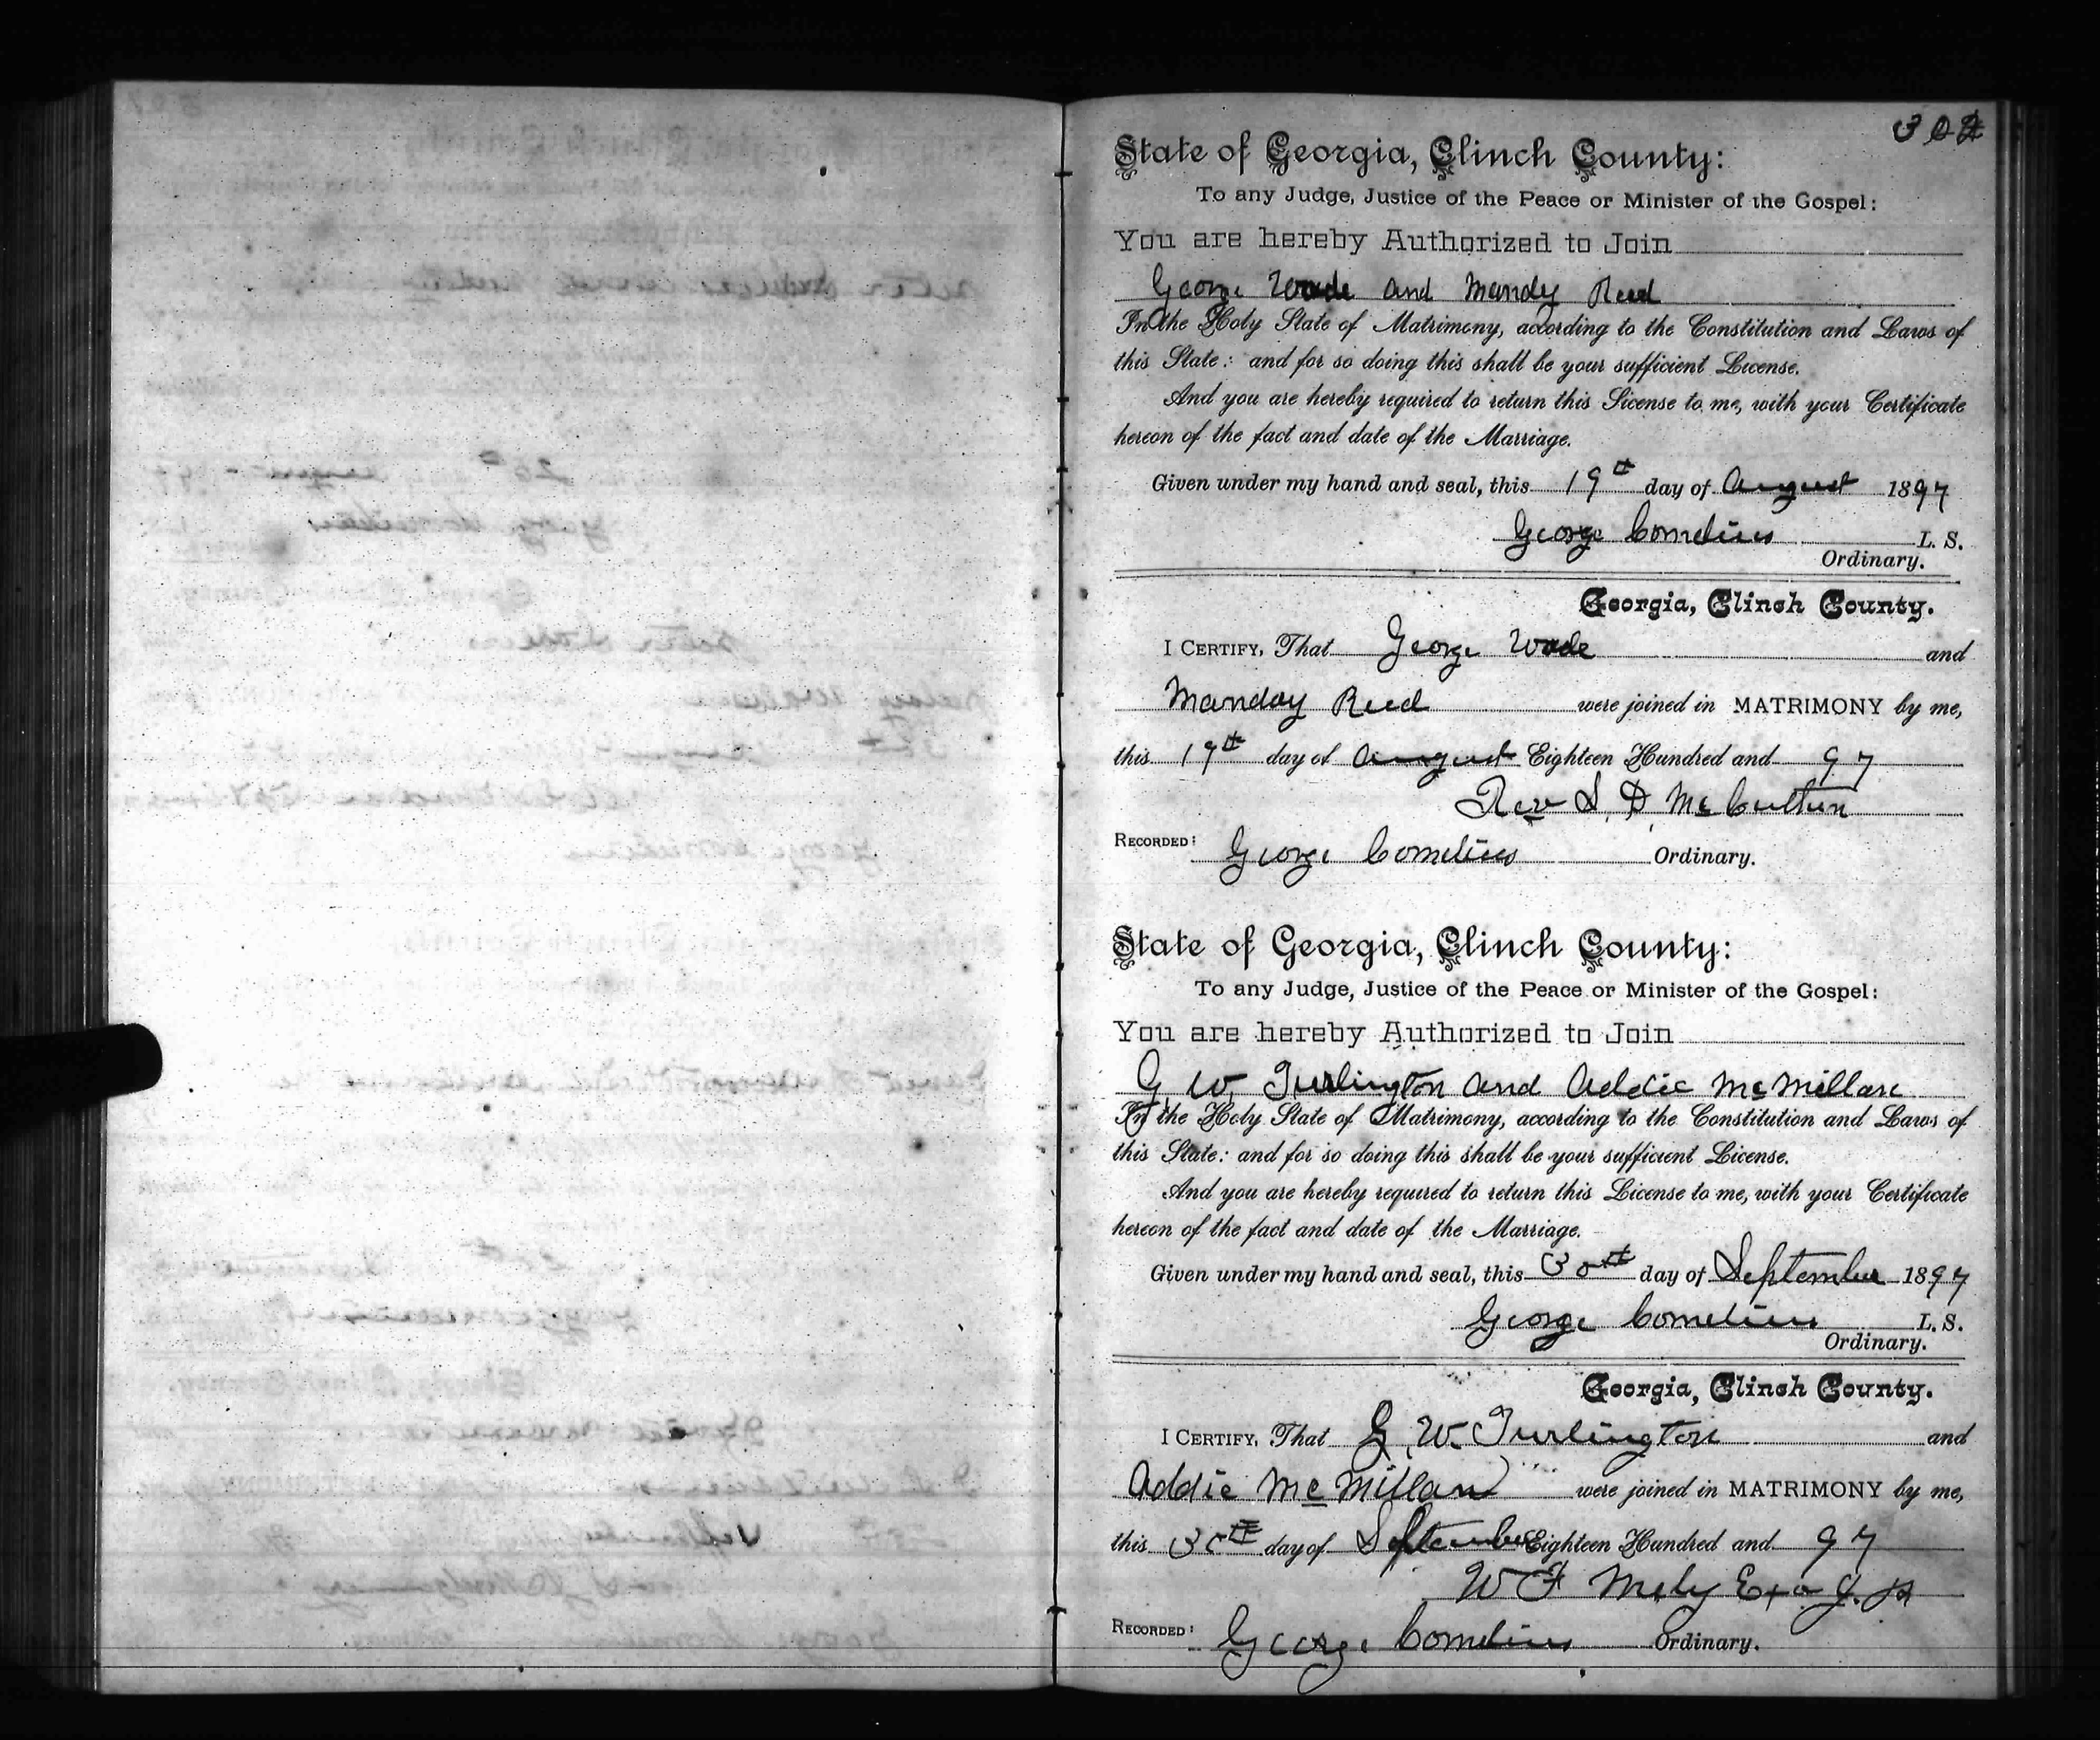 State of Georgia, Clinch County:
To any Judge, Justice of the Peace or Minister of the Gospel:
You are hereby Authorized to Join
George Wade and Mandy Reed
In the Holy State of Matrimony, according to the Constitution and Laws of
this State: and for so doing this shall be your sufficient License.
And you are hereby required to return this License to me, with your Certificate
hereon of the fact and date of the Marriage.
Given under my hand and seal, this 19th day of August 1897
George Cornelius L. S.
Ordinary.
Georgia, Clinch County.
I CERTIFY, That George Wade and
Manday Reed were joined in MATRIMONY by me,
this 19th day of August Eighteen Hundred and 97
Rev S. D.
RECORDED: George Cornelius Ordinary.
State of Georgia, Clinch County:
To any Judge, Justice of the Peace or Minister of the Gospel:
You are hereby Authorized to Join
G. W. Turlington and Addie McMillan
In the Holy State of Matrimony, according to the Constitution and Laws of
this State: and for so doing this shall be your sufficient License.
And you are hereby required to return this License to me, with your Certificate
hereon of the fact and date of the Marriage.
Given under my hand and seal, this 30th day of September 1897
George Cornelius L. S.
Ordinary.
Georgia, Clinch County.
I CERTIFY, That G. W. Turlington and
Addie McMillan were joined in MATRIMONY by me,
this 30th day of September Eighteen Hundred and 97
W F
RECORDED: George Cornelius Ordinary.